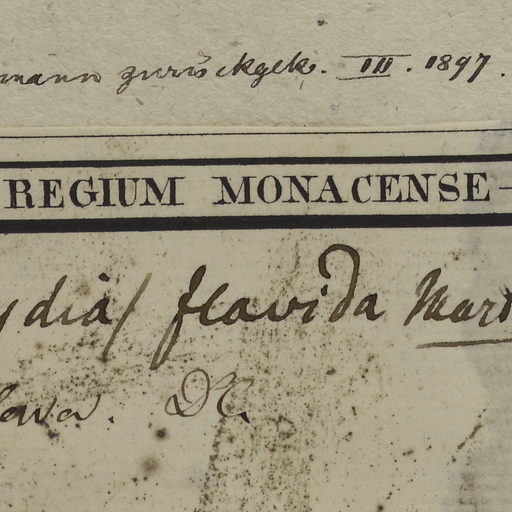 mann zurückgek. III. 1897.
REGIUM MONACENSE
ydia/ flavida Mart